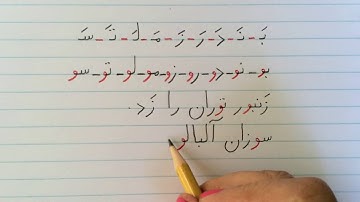 بَ ـ نَ ـ دَ ـ رَ ـ زَ ـ مَ ـ لَ ـ تَ ـ سَ
بو ـ نو ـ دو ـ رو ـ زو ـ مو ـ لو ـ تو ـ سو
زَنبور توران را زَد.
سوزان آلبالو